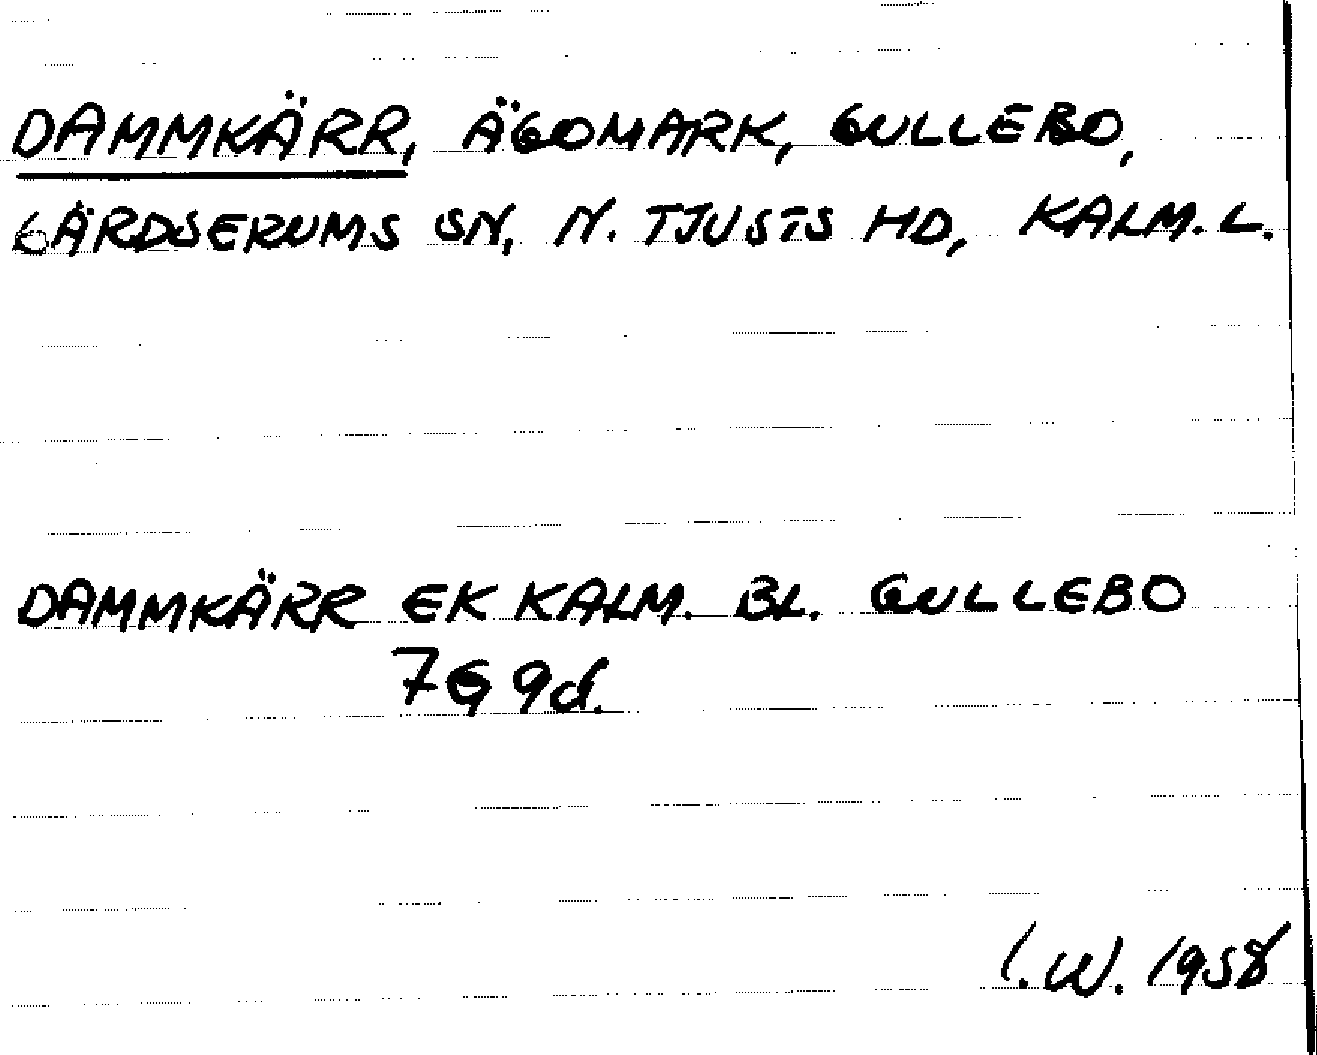 DAMMKÄRR, ÄGOMARK, GULLEBO,
GÄRDSERUMS SN, N. TJUSTS HD, KALM. L.
DAMMKÄRR EK KALM. BL. GULLEBO
7G 9d.
I.W. 1958